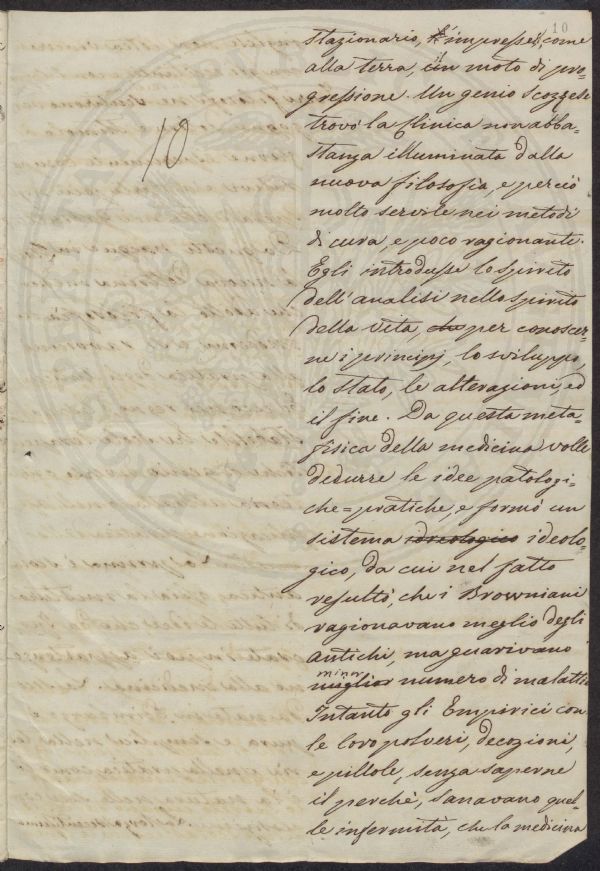 10
10
stazionario, s'impresse, come
alla terra, un moto di pro=
gressione. Un genio scozzese
trovò la Clinica non abba=
stanza illuminata dalla
nuova filosofia, e perciò
molto servile nei metodi
di cura, e poco ragionante.
Egli introdusse lo spirito
dell'analisi nello spirito
della vita, che per conoscer=
ne i principj, lo sviluppo,
lo stato, le alterazioni, ed
il fine. Da questa meta=
fisica della medicina volle
dedurre le idee patologi=
che=pratiche, e formò un
sistema ideologico ideolo=
gico, da cui nel fatto
resultò, che i Browniani
ragionavano meglio degli
antichi, ma guarivano
minor
miglior numero di malattie
Intanto gli Empirici con
le loro polveri, decozioni,
e pillole, senza saperne
il perchè, sanavano quel=
le infermità, che la medicina